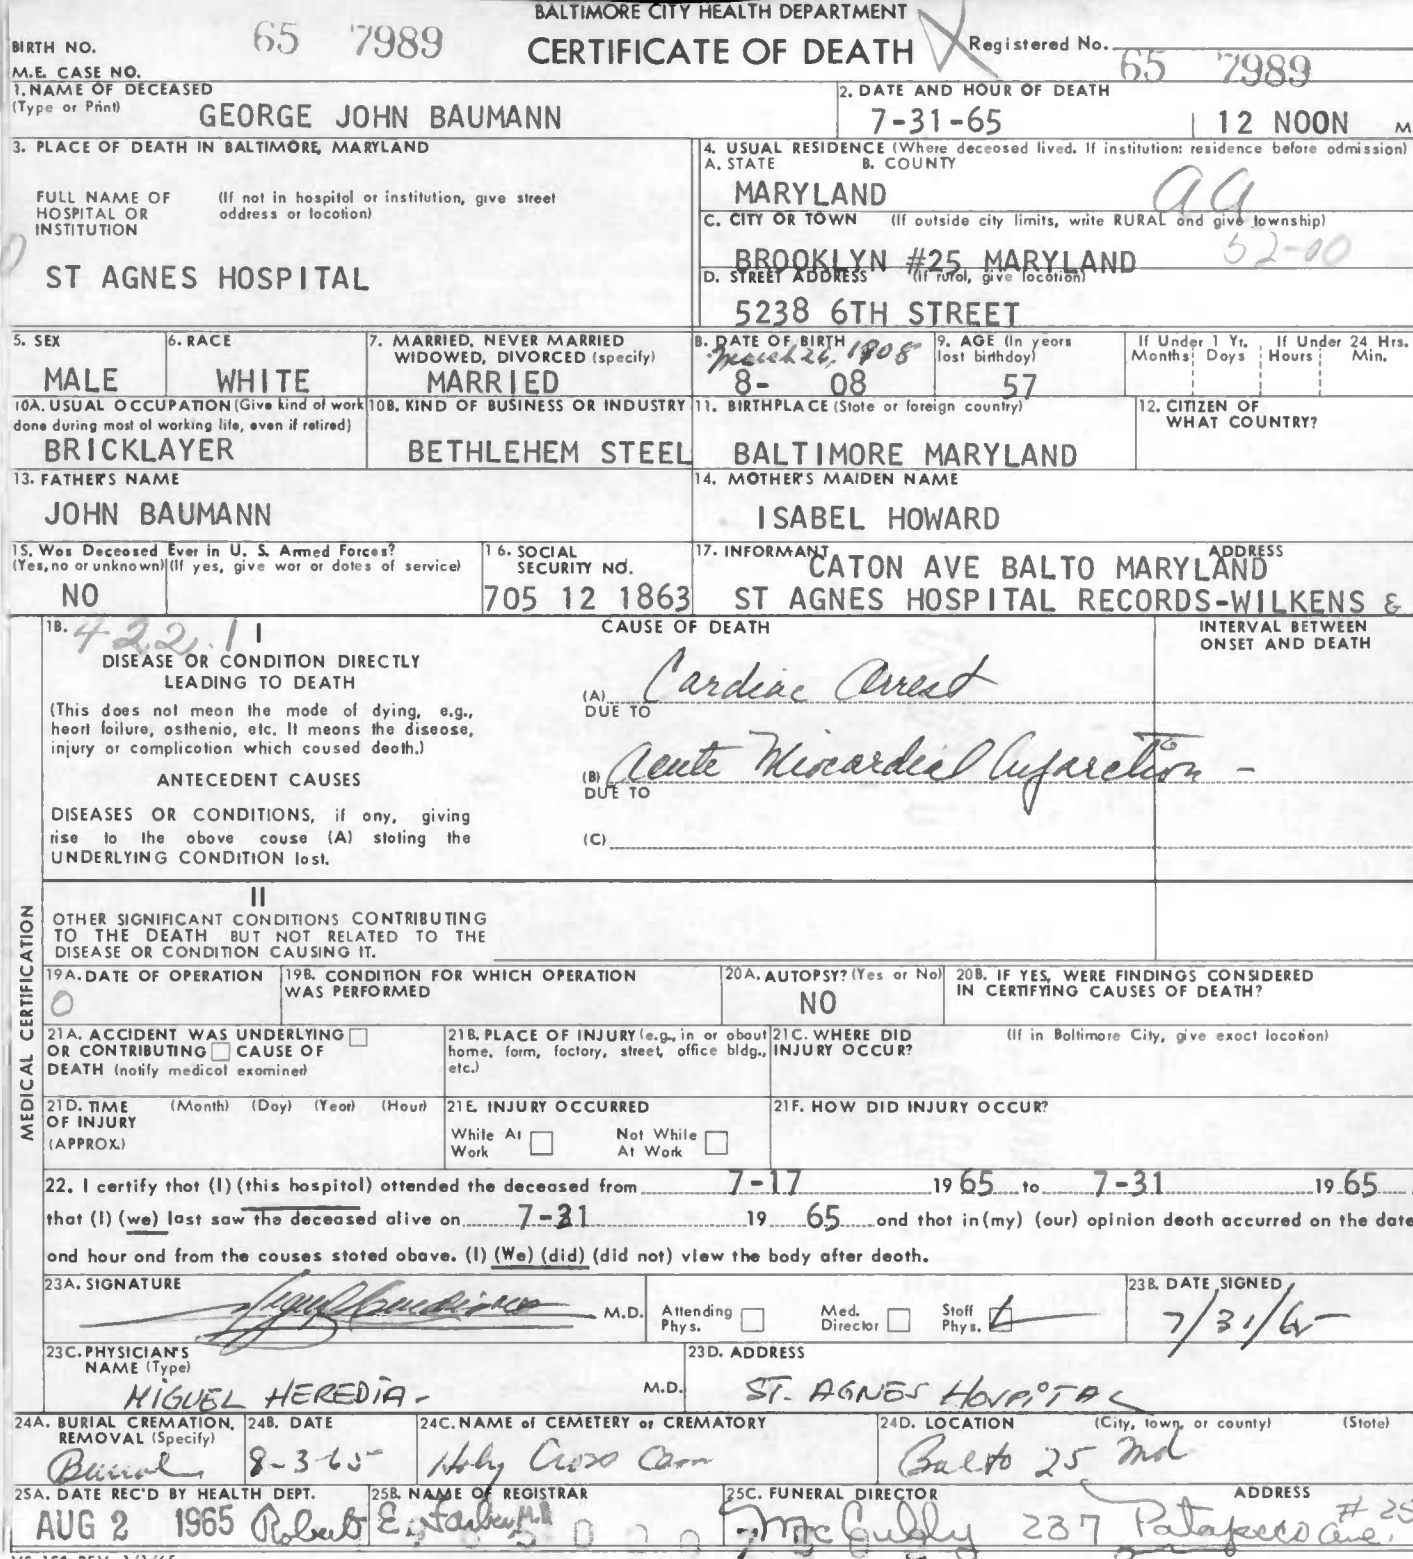 BALTIMORE CITY HEALTH DEPARTMENT
BIRTH NO. 65 7989 CERTIFICATE OF DEATH Registered No. 65 7989
M.E. CASE NO.
1. NAME OF DECEASED (Type or Print) GEORGE JOHN BAUMANN
2. DATE AND HOUR OF DEATH 7-31-65 12 NOON M
3. PLACE OF DEATH IN BALTIMORE, MARYLAND
FULL NAME OF HOSPITAL OR INSTITUTION (If not in hospital or institution, give street address or location)
ST AGNES HOSPITAL
4. USUAL RESIDENCE (Where deceased lived. If institution: residence before admission)
A. STATE B. COUNTY
MARYLAND AA
C. CITY OR TOWN (If outside city limits, write RURAL and give township)
BROOKLYN #25 MARYLAND 52-00
D. STREET ADDRESS (If rural, give location)
5238 6TH STREET
5. SEX MALE
6. RACE WHITE
7. MARRIED, NEVER MARRIED WIDOWED, DIVORCED (specify) MARRIED
8. DATE OF BIRTH March 26, 1908
8- 08
9. AGE (In years last birthday) 57
If Under 1 Yr. Months Days
If Under 24 Hrs. Hours Min.
10A. USUAL OCCUPATION (Give kind of work done during most of working life, even if retired) BRICKLAYER
10B. KIND OF BUSINESS OR INDUSTRY BETHLEHEM STEEL
11. BIRTHPLACE (State or foreign country) BALTIMORE MARYLAND
12. CITIZEN OF WHAT COUNTRY?
13. FATHER'S NAME JOHN BAUMANN
14. MOTHER'S MAIDEN NAME ISABEL HOWARD
15. Was Deceased Ever in U. S. Armed Forces? (Yes, no or unknown) (If yes, give war or dates of service) NO
16. SOCIAL SECURITY NO. 705 12 1863
17. INFORMANT ADDRESS
CATON AVE BALTO MARYLAND
ST AGNES HOSPITAL RECORDS-WILKENS &
MEDICAL CERTIFICATION
18. 422.1 I CAUSE OF DEATH INTERVAL BETWEEN ONSET AND DEATH
DISEASE OR CONDITION DIRECTLY LEADING TO DEATH
(This does not mean the mode of dying, e.g., heart failure, asthenia, etc. It means the disease, injury or complication which caused death.)
(A) Cardiac Arrest
DUE TO
ANTECEDENT CAUSES
(B) Acute Miocardial Infarction -
DUE TO
DISEASES OR CONDITIONS, if any, giving rise to the above cause (A) stating the UNDERLYING CONDITION last.
(C)
II
OTHER SIGNIFICANT CONDITIONS CONTRIBUTING TO THE DEATH BUT NOT RELATED TO THE DISEASE OR CONDITION CAUSING IT.
19A. DATE OF OPERATION 0
19B. CONDITION FOR WHICH OPERATION WAS PERFORMED
20A. AUTOPSY? (Yes or No) NO
20B. IF YES, WERE FINDINGS CONSIDERED IN CERTIFYING CAUSES OF DEATH?
21A. ACCIDENT WAS UNDERLYING OR CONTRIBUTING CAUSE OF DEATH (notify medical examiner)
21B. PLACE OF INJURY (e.g., in or about home, farm, factory, street, office bldg., etc.)
21C. WHERE DID INJURY OCCUR? (If in Baltimore City, give exact location)
21D. TIME OF INJURY (APPROX.) (Month) (Day) (Year) (Hour)
21E. INJURY OCCURRED While At Work Not While At Work
21F. HOW DID INJURY OCCUR?
22. I certify that (I) (this hospital) attended the deceased from 7-17 19 65 to 7-31 19 65
that (I) (we) last saw the deceased alive on 7-31 19 65 and that in (my) (our) opinion death occurred on the date
and hour and from the causes stated above. (I) (We) (did) (did not) view the body after death.
23A. SIGNATURE M.D. Attending Phys. Med. Director Staff Phys.
23B. DATE SIGNED 7/31/65
23C. PHYSICIAN'S NAME (Type) MIGUEL HEREDIA - M.D.
23D. ADDRESS ST. AGNES HOSPITAL
24A. BURIAL CREMATION, REMOVAL (Specify) Burial
24B. DATE 8-3-65
24C. NAME of CEMETERY or CREMATORY Holy Cross Cem
24D. LOCATION (City, town, or county) (State) Balto 25 Md
25A. DATE REC'D BY HEALTH DEPT. AUG 2 1965
25B. NAME OF REGISTRAR Robert E. Farber M.D.
25C. FUNERAL DIRECTOR ADDRESS
McCully 237 Patapsco Ave. #25